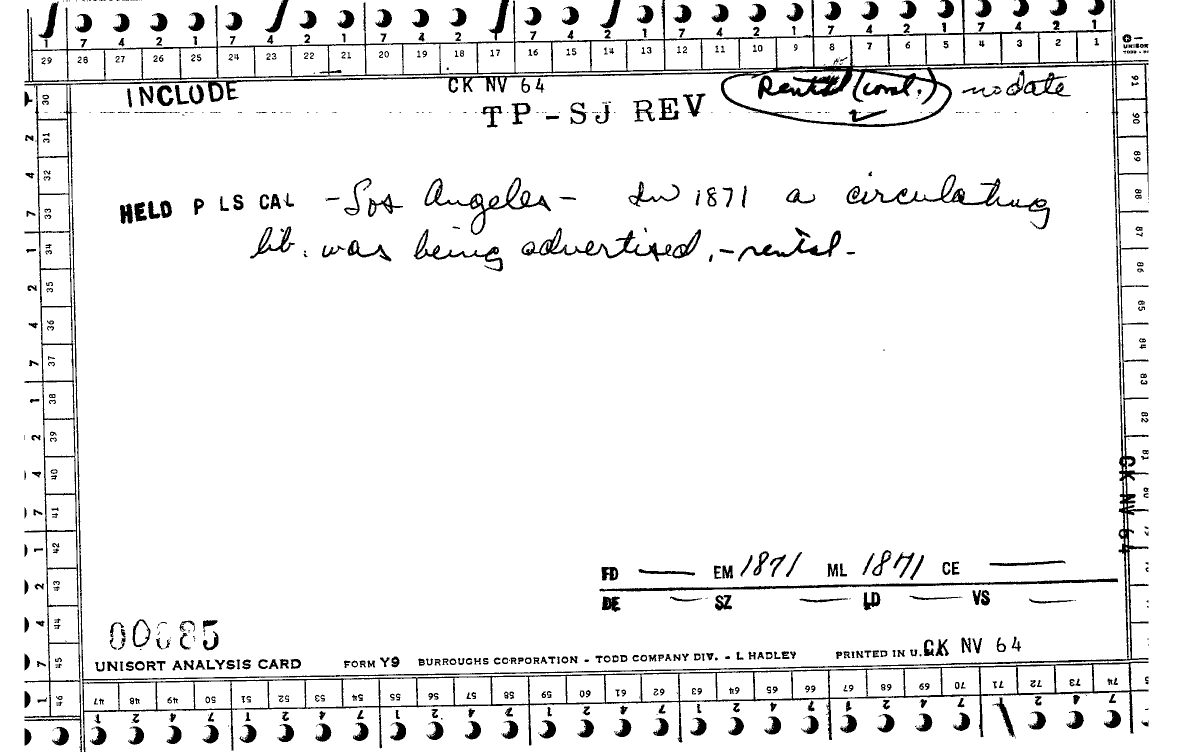 1 7 4 2 1 7 4 2 1 7 4 2 1 7 4 2 1 7 4 2 1 7 4 2 1 7 4 2 1
29 28 27 26 25 24 23 22 21 20 19 18 17 16 15 14 13 12 11 10 9 8 7 6 5 4 3 2 1
INCLUDE CK NV 64 Rental (cont.) no date
TP-SJ REV
HELD P LS CAL - Los Angeles - In 1871 a circulating
lib. was being advertised, - rental -
FD — EM 1871 ML 1871 CE —
DE — SZ — LD — VS —
00685
UNISORT ANALYSIS CARD FORM Y9 BURROUGHS CORPORATION - TODD COMPANY DIV. - L HADLEY PRINTED IN U.
CK NV 64
CK NV 64
30 31 32 33 34 35 36 37 38 39 40 41 42 43 44 45 46
91 90 89 88 87 86 85 84 83 82 81
47 48 49 50 51 52 53 54 55 56 57 58 59 60 61 62 63 64 65 66 67 68 69 70 71 72 73 74